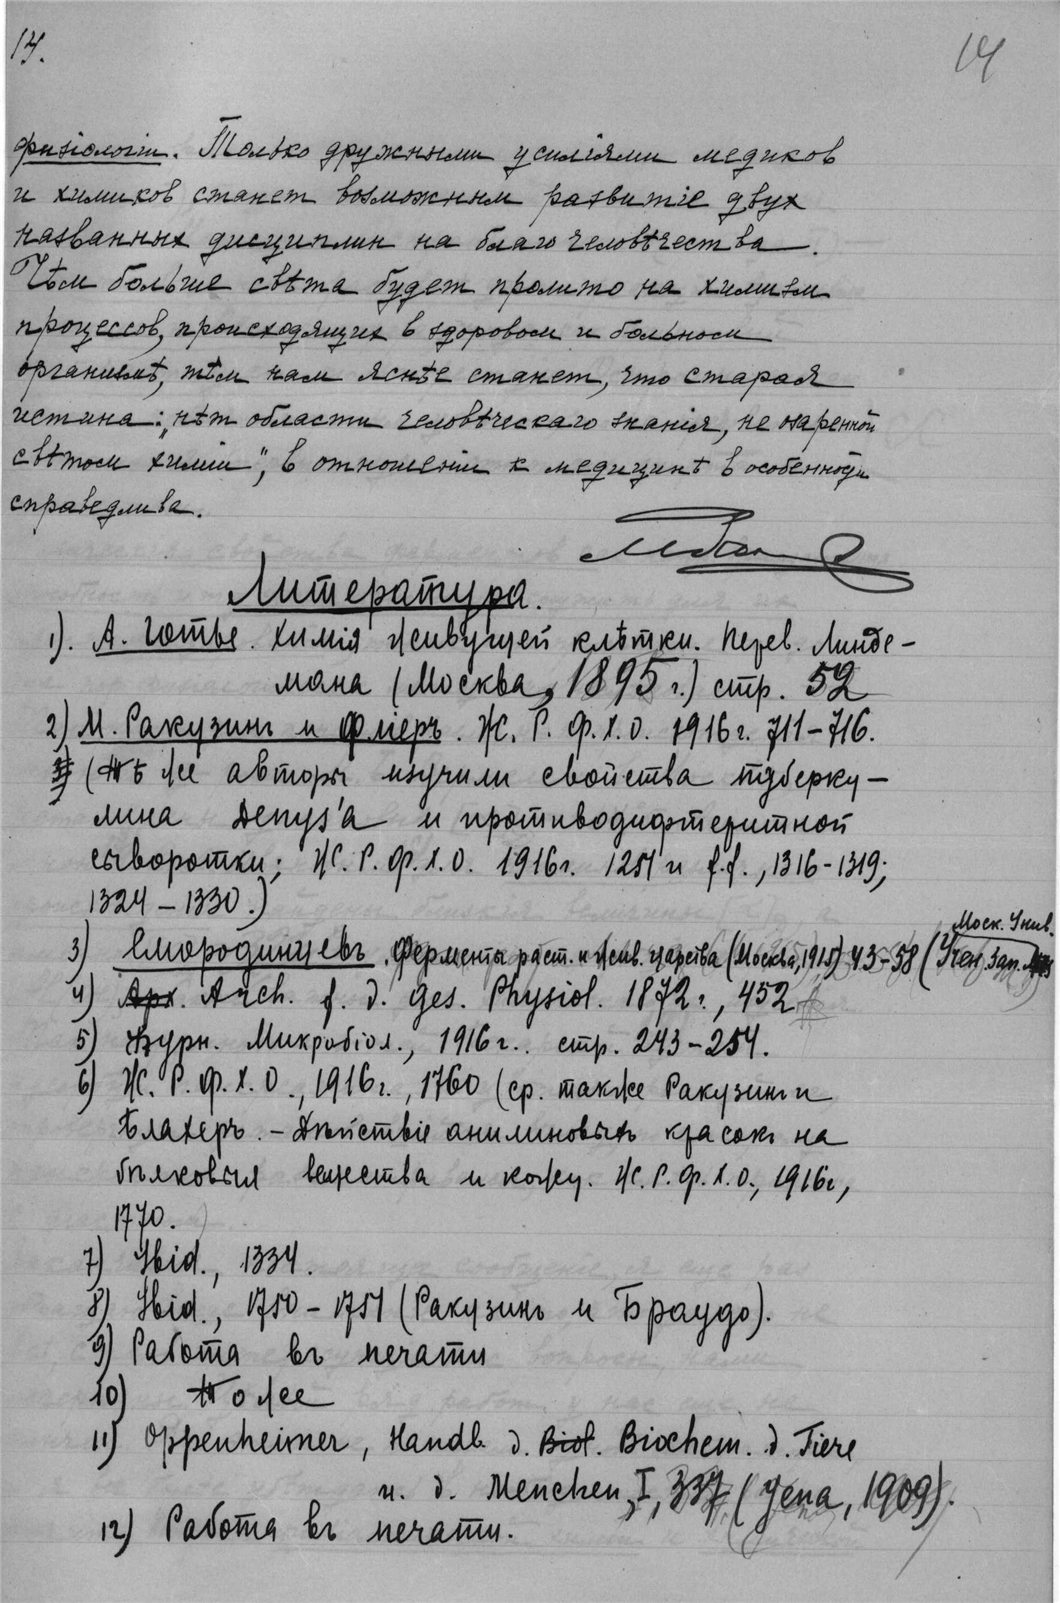 14.
14
физіологіи. Только дружными усиліями медиков
и химиков станет возможным развитіе двух
названных дисциплин на благо человѣчества.
Чѣм больше свѣта будет пролито на химизм
процессов, происходящих в здоровом и больном
организмѣ, тѣм нам яснѣе станет, что старая
истина: „нѣт области человѣческаго знанія, не озаренной
свѣтом химіи“, в отношеніи к медицинѣ в особенности
справедлива.
Литература.
1). А. Готье. Химія живущей клѣтки. Перев. Линде-
мана (Москва, 1895 г.) стр. 52
2) М. Ракузинъ и Флiеръ. Ж. Р. Ф. Х. О. 1916 г. 711-716.
(Тѣ же авторы изучили свойства туберку-
лина Denys'а и противодифтеритной
сыворотки; Ж. Р. Ф. Х. О. 1916 г. 1251 и f.f., 1316-1319;
1324-1330.)
Моск. Унив.
3) Смородинцевъ. Ферменты раст. и жив. царства (Москва, 1915) 43-58 (Учен. Зап.
4) Арх. Arch. f. d. ges. Physiol. 1872 г., 452
5) Журн. Микробіол., 1916 г.. стр. 243-254.
6) Ж. Р. Ф. Х. О., 1916 г., 1760 (ср. также Ракузинъ и
Флахеръ. - Дѣйствіе анилиновыхъ красокъ на
бѣлковыя вещества и кожу. Ж. Р. Ф. Х. О., 1916 г.,
1770.
7) Ibid., 1334.
8) Ibid., 1750-1751 (Ракузинъ и Браудо).
9) Работа въ печати
10) То же
11) Oppenheimer, Handb. d. Biol. Biochem. d. Tiere
u. d. Menchen, I, 337 (Jena, 1909).
12) Работа въ печати.